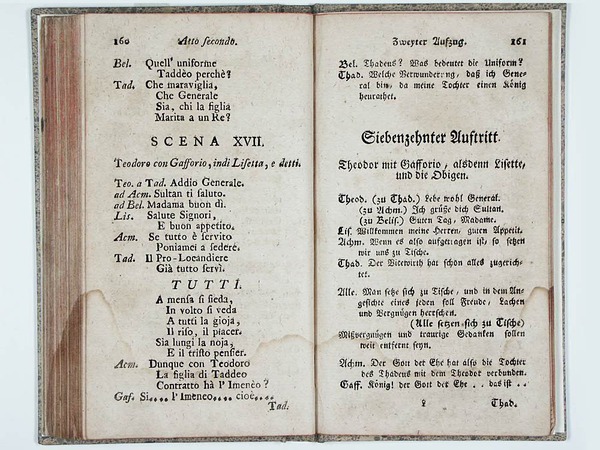 160 Atto secondo.
Bel. Quell' uniforme
Taddèo perchè?
Tad. Che maraviglia,
Che Generale
Sia, chi la figlia
Marita a un Re?
SCENA XVII.
Teodoro con Gafforio, indi Lisetta, e detti.
Teo. a Tad. Addio Generale.
ad Acm. Sultan ti saluto.
ad Bel. Madama buon dì.
Lis. Salute Signori,
E buon appetito.
Acm. Se tutto è servito
Poniamci a sedere.
Tad. Il Pro-Locandiere
Già tutto servì.
TUTTI.
A mensa si sieda,
In volto si veda
A tutti la gioja,
Il riso, il piacer.
Sia lungi la noja,
E il tristo pensier.
Acm. Dunque con Teodoro
La figlia di Taddeo
Contratto hà l' Imenèo?
Gaf. Si.... l' Imeneo.... cioè....
Tad.
Zweyter Aufzug. 161
Bel. Thadeus? Was bedeutet die Uniform?
Thad. Welche Verwunderung, daß ich Gene-
ral bin, da meine Tochter einen König
heurathet.
Siebenzehnter Auftritt.
Theodor mit Gafforio, alsdenn Lisette,
und die Obigen.
Theod. (zu Thad.) Lebe wohl General.
(zu Achm.) Ich grüße dich Sultan.
(zu Belis.) Guten Tag, Madame.
Lis. Willkommen meine Herren, guten Appetit.
Achm. Wenn es also aufgetragen ist, so setzen
wir uns zu Tische.
Thad. Der Vicewirth hat schon alles zugerich-
tet.
Alle. Man setze sich zu Tische, und in dem An-
gesichte eines jeden soll Freude, Lachen
und Vergnügen herrschen.
(Alle setzen sich zu Tische)
Mißvergnügen und traurige Gedanken sollen
weit entfernt seyn.
Achm. Der Gott der Ehe hat also die Tochter
des Thadeus mit dem Theodor verbunden.
Gaff. König! der Gott der Ehe . . das ist . .
Thad.